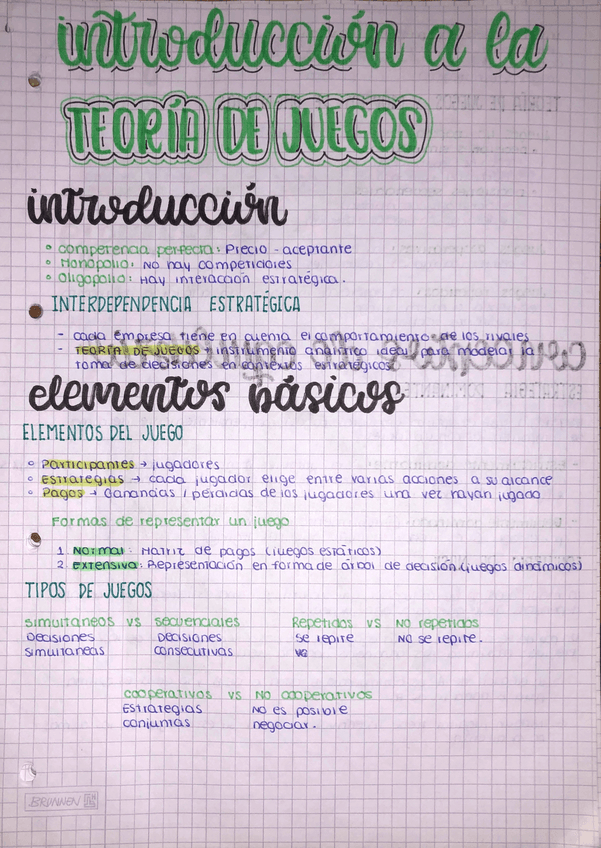 introducción a la
TEORÍA DE JUEGOS
introducción
° competencia perfecta: Precio-aceptante
° Monopolio: No hay competidores
° Oligopolio: Hay interacción estratégica.
INTERDEPENDENCIA ESTRATÉGICA
- cada empresa tiene en cuenta el comportamiento de los rivales
- TEORÍA DE JUEGOS → instrumento analítico ideal para modelar la
toma de decisiones en contextos estratégicos.
elementos básicos
ELEMENTOS DEL JUEGO
° Participantes → jugadores
° Estrategias → cada jugador elige entre varias acciones a su alcance
° Pagos → Ganancias / pérdidas de los jugadores una vez hayan jugado
Formas de representar un juego
1. Normal: Matriz de pagos (juegos estáticos)
2. Extensiva: Representación en forma de árbol de decisión (juegos dinámicos)
TIPOS DE JUEGOS
simultáneos vs secuenciales Repetidos vs No repetidos
Decisiones Decisiones Se repite No se repite.
simultáneas consecutivas
cooperativos vs No cooperativos
Estrategias No es posible
conjuntas negociar.
BRUNNEN